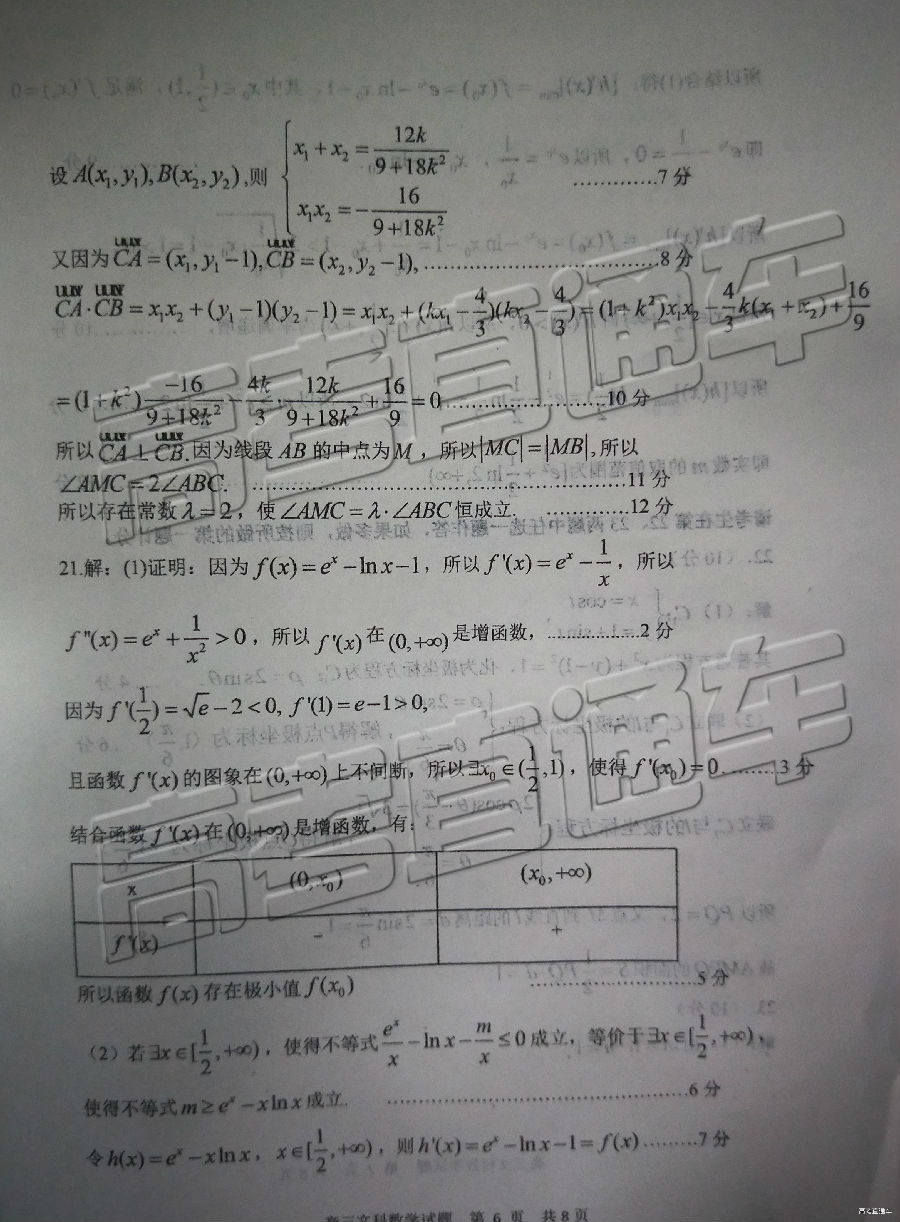 设 A(x₁,y₁),B(x₂,y₂),则 { x₁+x₂=12k/(9+18k²) ; x₁x₂=-16/(9+18k²) ………….7 分
又因为 CA=(x₁,y₁-1),CB=(x₂,y₂-1),……………………………8 分
CA·CB=x₁x₂+(y₁-1)(y₂-1)=x₁x₂+(kx₁-4/3)(kx₂-4/3)=(1+k²)x₁x₂-4/3k(x₁+x₂)+16/9
=(1+k²)(-16)/(9+18k²)-4k/3·12k/(9+18k²)+16/9=0……………………10 分
所以 CA⊥CB.因为线段 AB 的中点为 M ，所以|MC|=|MB|,所以
∠AMC=2∠ABC. ………………………………………………11 分
所以存在常数 λ=2，使 ∠AMC=λ·∠ABC 恒成立. …………..12 分
21.解：(1)证明：因为 f(x)=eˣ-ln x-1，所以 f'(x)=eˣ-1/x，所以
f''(x)=eˣ+1/x²>0，所以 f'(x) 在 (0,+∞) 是增函数，…………2 分
因为 f'(1/2)=√e-2<0, f'(1)=e-1>0,
且函数 f'(x) 的图象在 (0,+∞) 上不间断，所以 ∃x₀∈(1/2,1)，使得 f'(x₀)=0………3 分
结合函数 f'(x) 在 (0,+∞) 是增函数，有：
x (0,x₀) (x₀,+∞)
f'(x) - +
所以函数 f(x) 存在极小值 f(x₀) ……………………5 分
（2）若 ∃x∈[1/2,+∞)，使得不等式 eˣ/x-ln x-m/x≤0 成立，等价于 ∃x∈[1/2,+∞)，
使得不等式 m≥eˣ-x ln x 成立. ……………………………………6 分
令 h(x)=eˣ-x ln x，x∈[1/2,+∞)，则 h'(x)=eˣ-ln x-1=f(x)………7 分
高三文科数学试题 第 6 页 共 8 页
高考直通车
高考直通车
高考直通车